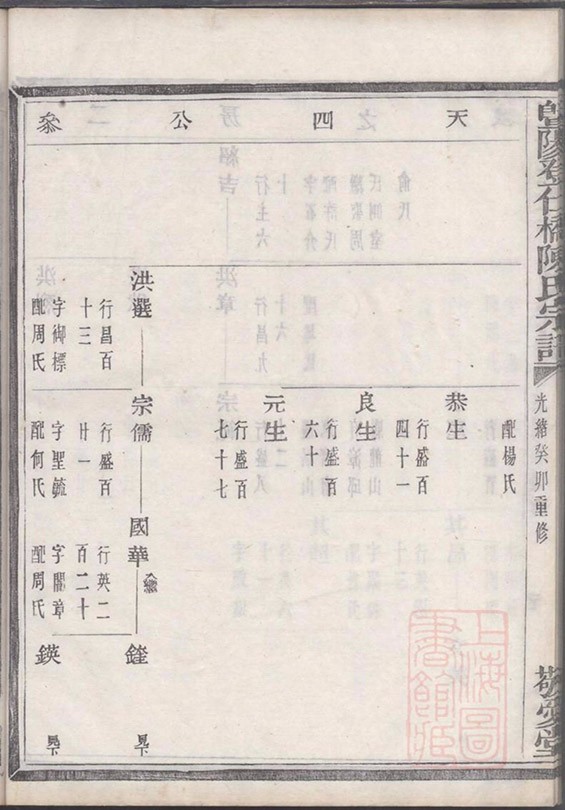 陽登仁橋陳氏宗譜
光緒癸卯重修
敬愛堂
天四公叅
配楊氏
恭生
行盛百
四十一
良生
行盛百
六十
元生
行盛百
七十七
洪選
行昌百
十三
字御標
配周氏
宗儒
行盛百
廿一
字聖毓
配何氏
國華
行英二
百二十
字闇章
配周氏
見下
鍈
見下
上海圖書館藏